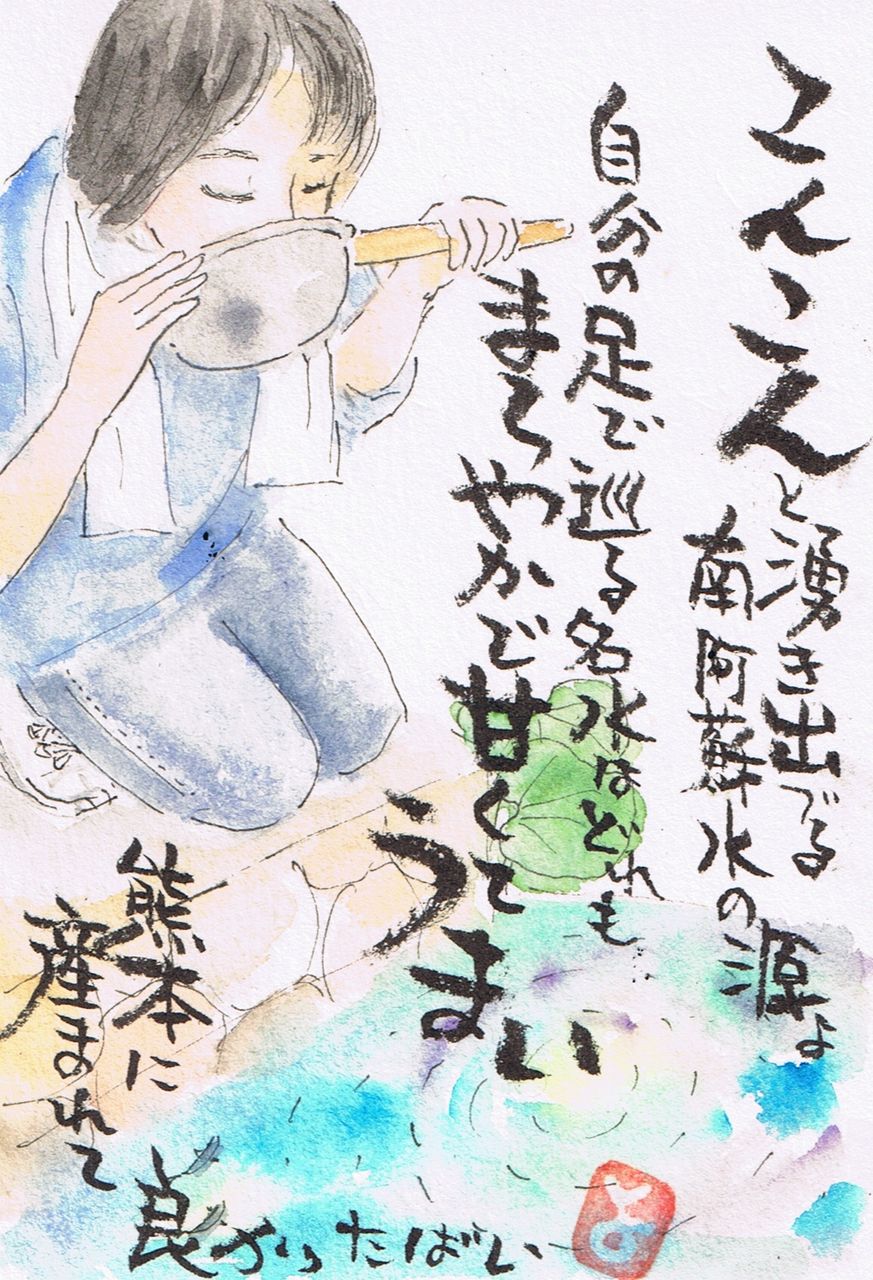 こんこんと湧き出でる
南阿蘇水の源よ
自分の足で巡る名水はどれも
まろやかで甘くて
うまい
熊本に
産まれて
良かったばい
とよ